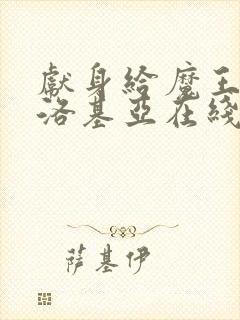 獻身給魔王
洛基亞在綫
萨基伊